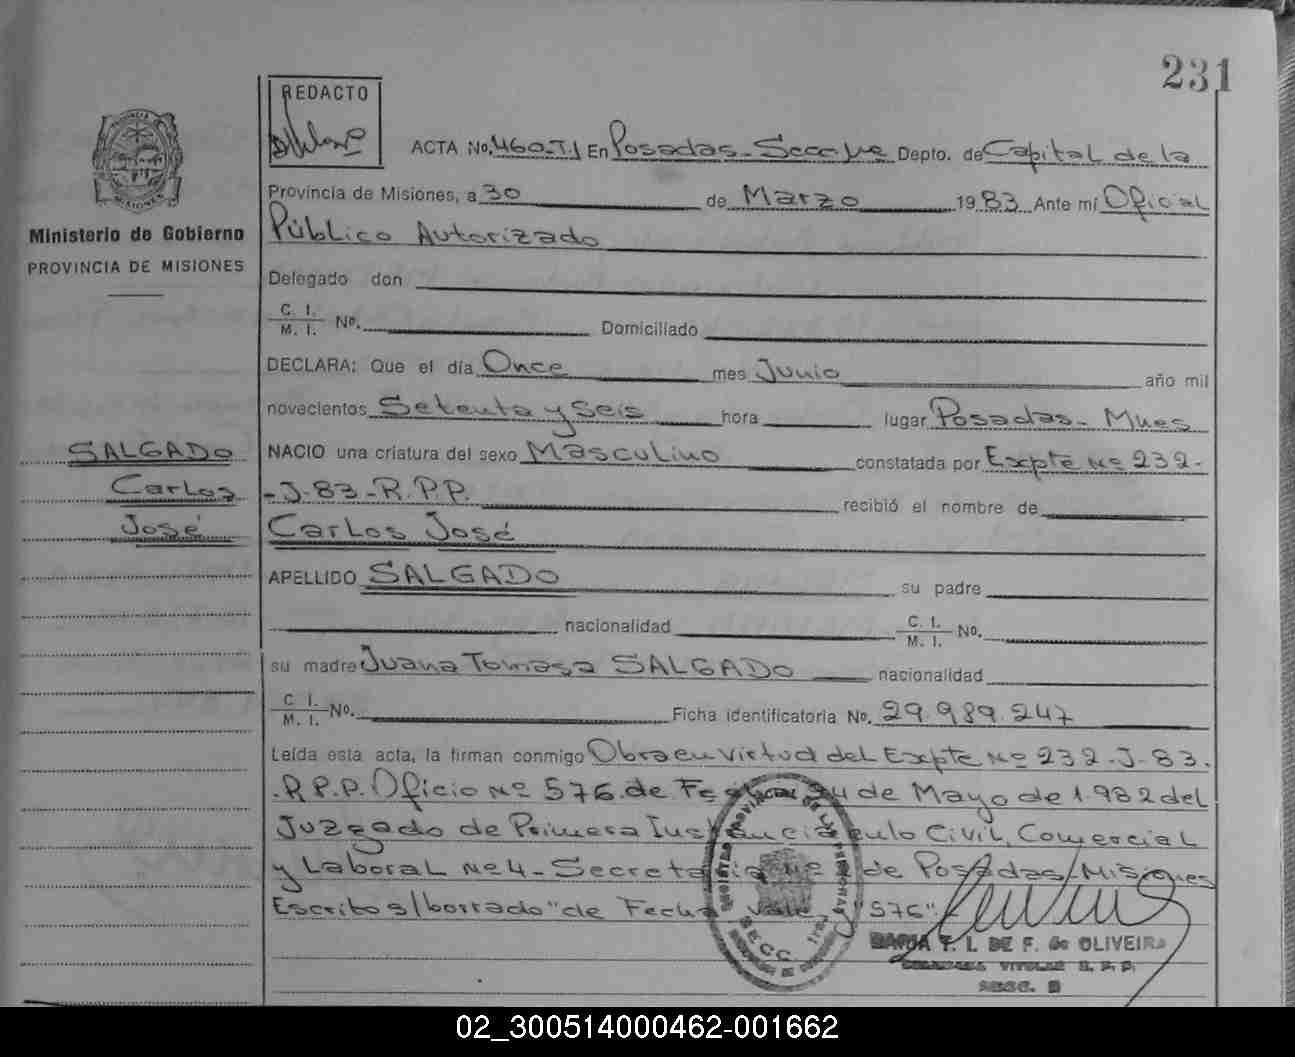 231
REDACTO
ACTA No. 460-T.I En Posadas - Secc Depto. de Capital de la
Provincia de Misiones, a 30 de Marzo 1983 Ante mí Oficial
Público Autorizado
Ministerio de Gobierno
PROVINCIA DE MISIONES
Delegado don
C. I.
M. I. No. Domiciliado
DECLARA: Que el día Once mes Junio año mil
novecientos Setenta y Seis hora lugar Posadas - Mnes
SALGADO
Carlos
José
NACIO una criatura del sexo Masculino constatada por Expte Nº 232-
-J-83-R.P.P. recibió el nombre de
Carlos José
APELLIDO SALGADO su padre
nacionalidad C. I.
M. I. No.
su madre Juana Tomasa SALGADO nacionalidad
C. I.
M. I. No. Ficha identificatoria No. 29.989.247
Leída esta acta, la firman conmigo Obra en Virtud del Expte Nº 232-J-83.
.R.P.P. Oficio Nº 576 de Fecha 24 de Mayo de 1.982 del
Juzgado de Primera Instancia en lo Civil, Comercial
y Laboral Nº 4 - Secretaria Nº de Posadas - Misiones
Escrito s/borrado "de Fecha Vale, "576".
REGISTRO PROVINCIAL DE LAS PERSONAS
SECC.
MARIA T. I. DE F. de OLIVEIRA
TITULAR R. P. P.
SECC. B
02_300514000462-001662